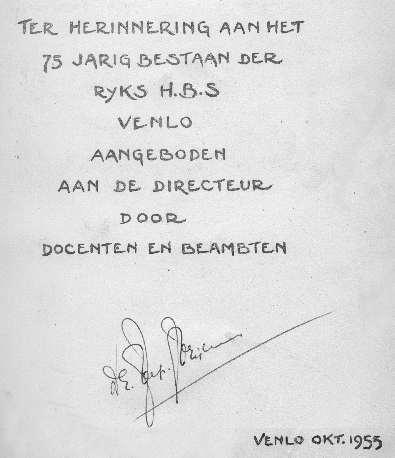 TER HERINNERING AAN HET
75 JARIG BESTAAN DER
RYKS H.B.S
VENLO
AANGEBODEN
AAN DE DIRECTEUR
DOOR
DOCENTEN EN BEAMBTEN
VENLO OKT. 1955